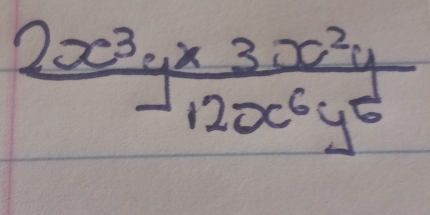 2x³y × 3x²y
12x⁶y⁵